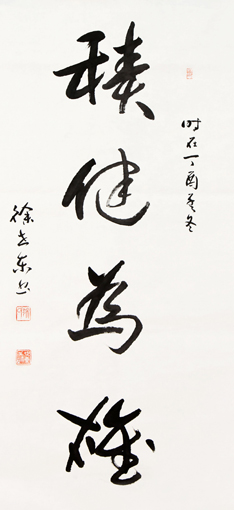 時在丁酉孟冬
積健為雄
徐世東書